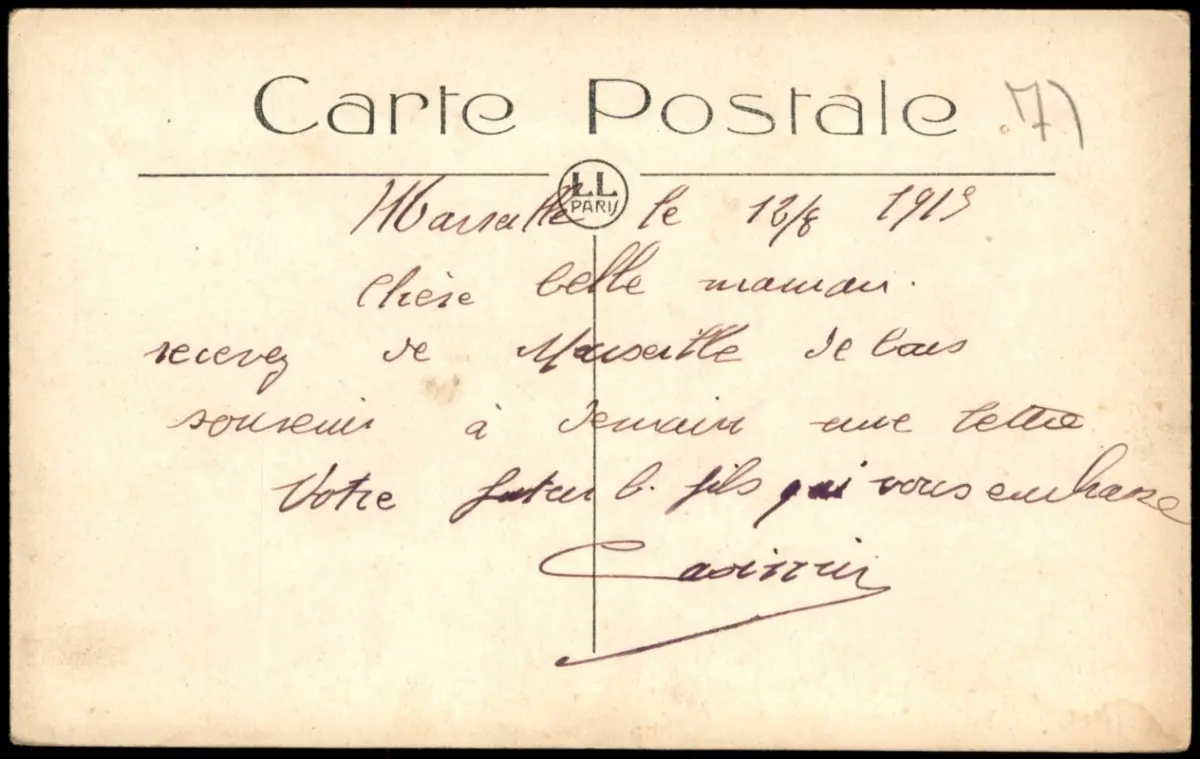 Carte Postale
77
LL
PARIS
Marseille le 12/8 1919
Chère belle maman.
recevez de Marseille de bons
souvenir à demain une lettre
Votre futur b. fils qui vous embrasse
Casimir